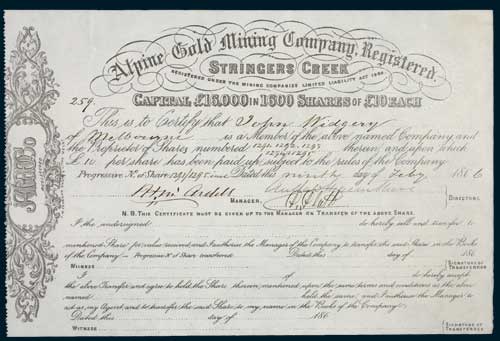 Alpine Gold Mining Company, Registered.
STRINGERS CREEK
REGISTERED UNDER THE MINING COMPANIES LIMITED LIABILITY ACT 1864.
CAPITAL £15,000 IN 1500 SHARES OF £10 EACH
259.
This is to Certify that John Widgery
of Melbourne is a Member of the above named Company and
the Proprietor of Shares numbered 1291. 1292. 1293
1294. 1295 therein, and upon which
£10 per share has been paid up, subject to the rules of the Company.
Progressive No. of Share 1291/1295 inc. Dated this ninth day of Feby. 1866
MANAGER
DIRECTORS
N.B. THIS CERTIFICATE MUST BE GIVEN UP TO THE MANAGER ON TRANSFER OF THE ABOVE SHARE.
I the undersigned do hereby sell and transfer to
mentioned Share for value received, and Authorise the Manager of the Company to transfer the said Share in the Books
of the Company — Progressive No. of Share transferred Dated this day of 186
WITNESS SIGNATURE OF TRANSFEROR
I of do hereby accept
the above Transfer and agree to hold the Share therein mentioned upon the same terms and conditions as the above
named held the same; and I authorise the Manager to
act as my Agent, and to transfer the said Share to my name in the Books of the Company.
Dated this day of 186
WITNESS SIGNATURE OF TRANSFEREE